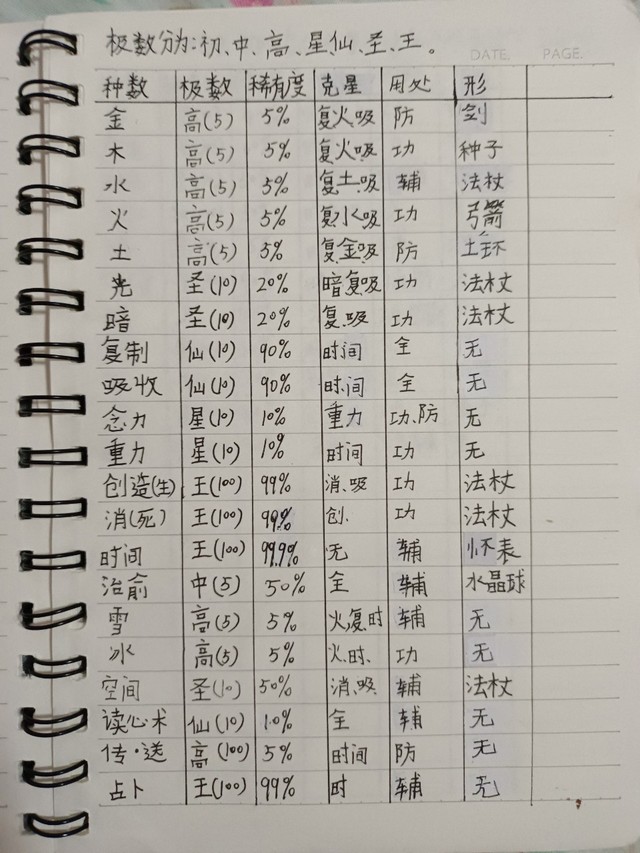 极数分为:初、中、高、星仙、圣、王。
DATE. PAGE.
种数 极数 稀有度 克星 用处 形
金 高(5) 5% 复火吸 防 剑
木 高(5) 5% 复火吸 功 种子
水 高(5) 5% 复土吸 辅 法杖
火 高(5) 5% 复水吸 功 弓箭
土 高(5) 5% 复金吸 防
光 圣(10) 20% 暗复吸 功 法杖
暗 圣(10) 20% 复.吸 功 法杖
复制 仙(10) 90% 时间 全 无
吸收 仙(10) 90% 时间 全 无
念力 星(10) 10% 重力 功、防 无
重力 星(10) 10% 时间 功 无
创造(生) 王(100) 99% 消、吸 功 法杖
消(死) 王(100) 99% 创. 功 法杖
时间 王(100) 99.9% 无 辅 怀表
治俞 中(5) 50% 全 辅 水晶球
雪 高(5) 5% 火复时 辅 无
冰 高(5) 5% 火.时. 功 无
空间 圣(10) 50% 消、吸 辅 法杖
读心术 仙(10) 10% 全 辅 无
传·送 高(100) 5% 时间 防 无
占卜 王(100) 99% 时 辅 无